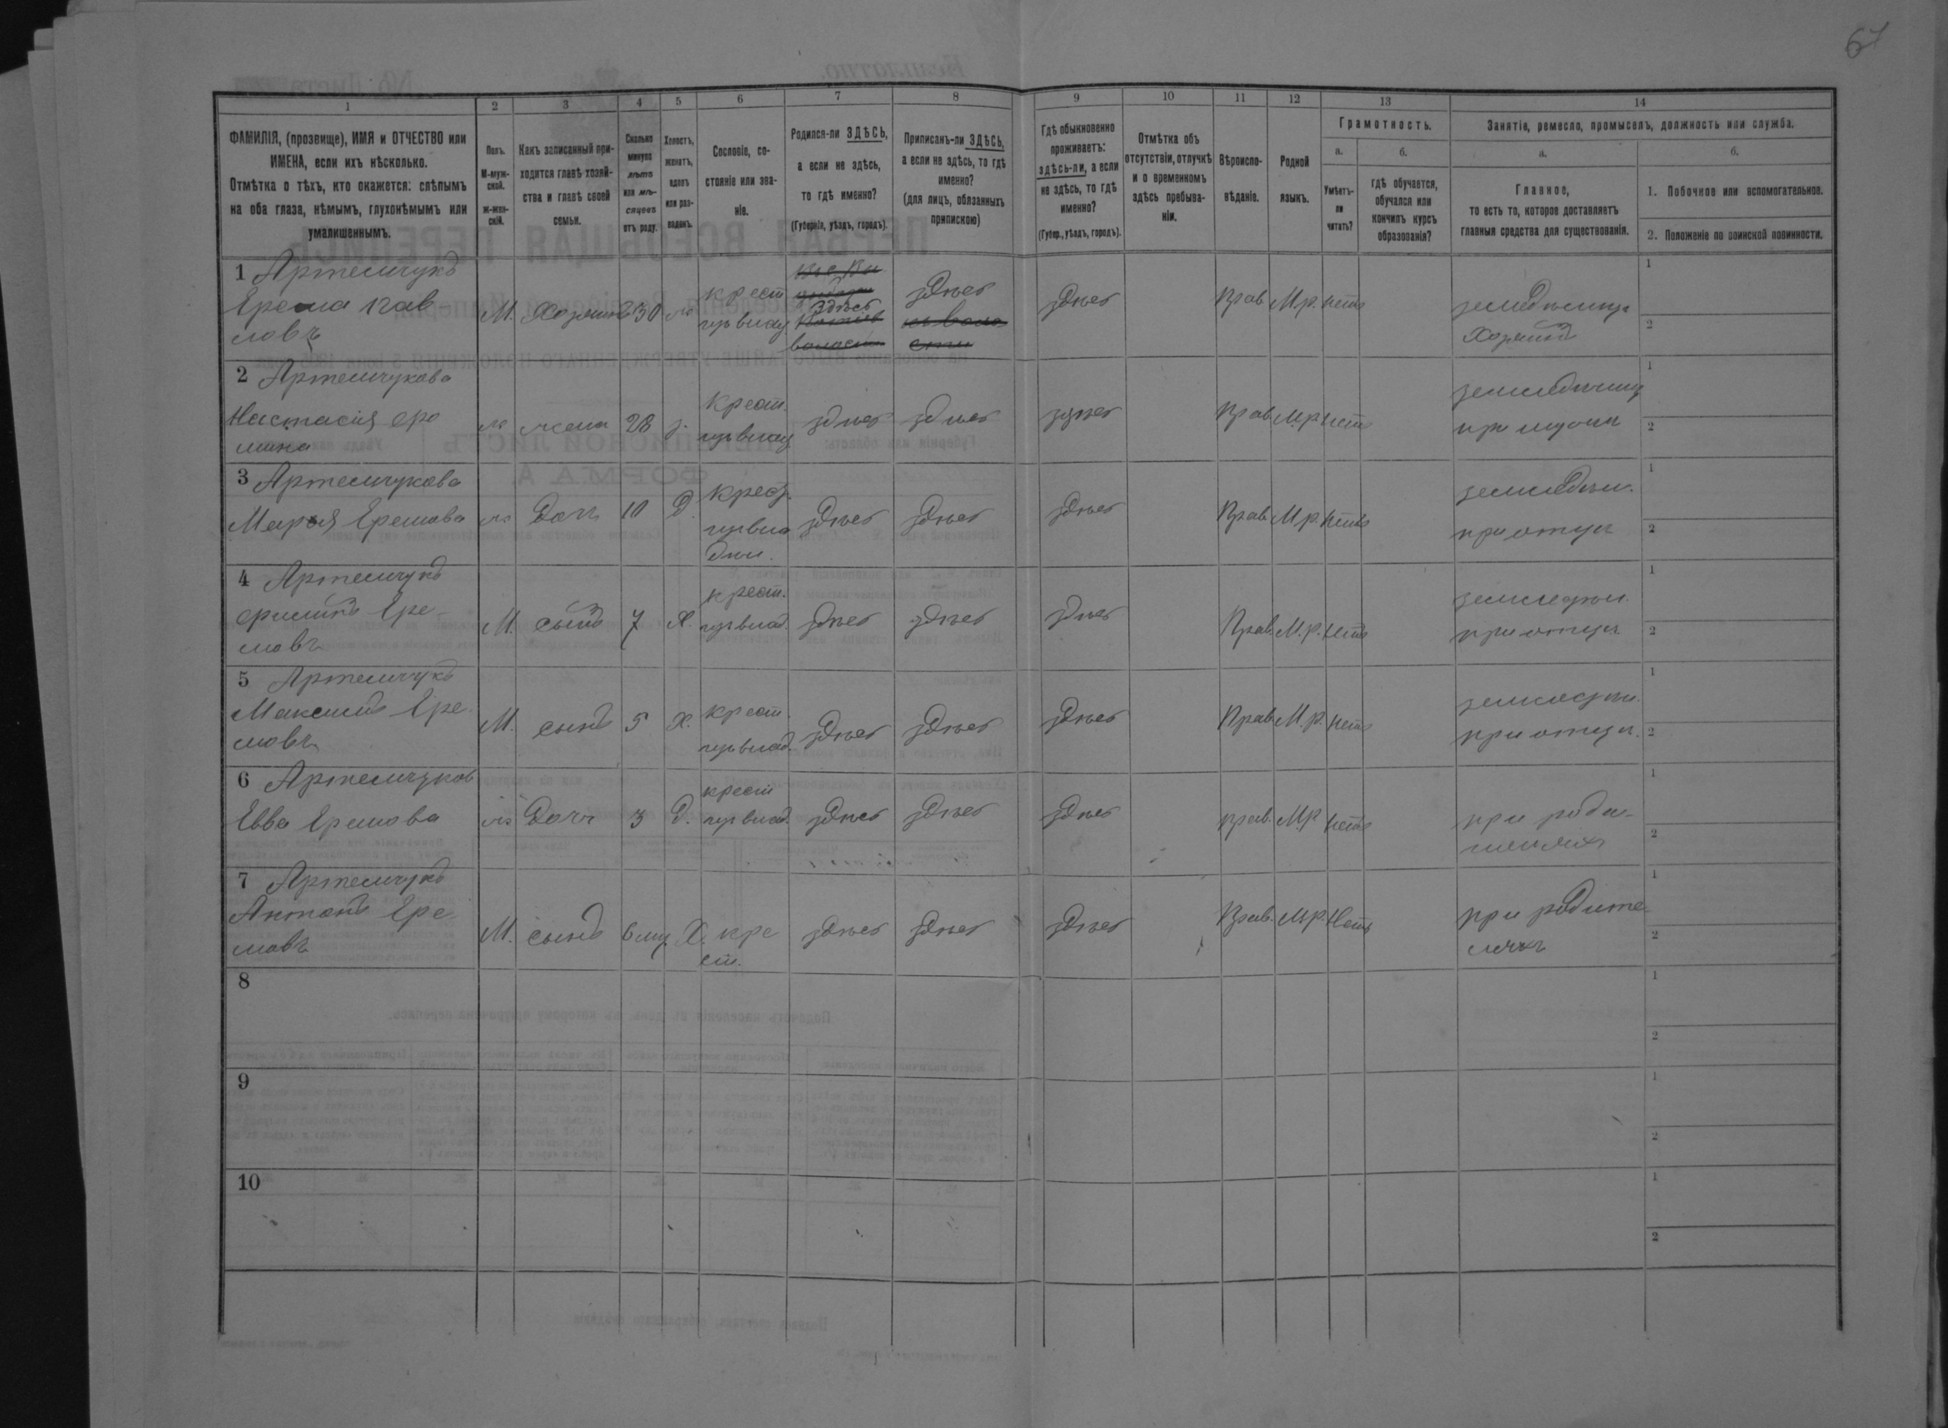 67
1 2 3 4 5 6 7 8 9 10 11 12 13 14
ФАМИЛІЯ, (прозвище), ИМЯ и ОТЧЕСТВО или
ИМЕНА, если ихъ нѣсколько.
Отмѣтка о тѣхъ, кто окажется: слѣпымъ
на оба глаза, нѣмымъ, глухонѣмымъ или
умалишеннымъ.
Полъ.
М-муж-
ской.
ж-жен-
скій.
Какъ записанный при-
ходится главѣ хозяй-
ства и главѣ своей
семьи.
Сколько
минуло
лѣтъ
или мѣ-
сяцевъ
отъ роду.
Холостъ,
женатъ,
вдовъ
или раз-
веденъ.
Сословіе, со-
стояніе или зва-
ніе.
Родился-ли ЗДѢСЬ,
а если не здѣсь,
то гдѣ именно?
(Губернія, уѣздъ, городъ).
Приписанъ-ли ЗДѢСЬ,
а если не здѣсь, то гдѣ
именно?
(для лицъ, обязанныхъ
припискою)
Гдѣ обыкновенно
проживаетъ:
здѣсь-ли, а если
не здѣсь, то гдѣ
именно?
(Губер., уѣздъ, городъ).
Отмѣтка объ
отсутствіи, отлучкѣ
и о временномъ
здѣсь пребыва-
ніи.
Вѣроиспо-
вѣданіе.
Родной
языкъ.
Грамотность.
а.
Умѣетъ-
ли
читать?
б.
гдѣ обучается,
обучался или
кончилъ курсъ
образованія?
Занятіе, ремесло, промыселъ, должность или служба.
а.
Главное,
то есть то, которое доставляетъ
главныя средства для существованія.
б.
1. Побочное или вспомогательное.
2. Положеніе по воинской повинности.
1 Артемчукъ
Ерема Пав
ловъ
М. Хозяинъ 30
крест
здѣсь
здѣсь
здѣсь
Прав М.р. нетъ
Хозяинъ
1
2
2 Артемчукова
Настасія Ере
мина
жена 28
Крест.
здѣсь здѣсь здѣсь
Прав М.р. нетъ
при мужи
1
2
3 Артемчукова
Марья Еремова
Доч 10 Д.
Крест.
здѣсь здѣсь здѣсь
Прав М.р. нетъ
при отцы
1
2
4 Артемчукъ
Ере-
мовъ
М. сынъ 7 Х.
крест.
здѣсь здѣсь здѣсь
Прав. М.р. нетъ
при отцы
1
2
5 Артемчукъ
Максимъ Ере-
мовъ
М. сынъ 5 Х.
крест.
здѣсь здѣсь здѣсь
Прав М.р. нетъ
при отцы.
1
2
6 Артемчуков
Евва Еремова
Доч 3 Д.
крест
здѣсь здѣсь здѣсь
прав. М.р. нетъ
при роди-
телях
1
2
7 Артемчукъ
Антонъ Ере
мовъ
М. сынъ 6 мц Х. кре
ст.
здѣсь здѣсь здѣсь
Прав. М.р. Нетъ
при родите
ляхъ
1
2
8
1
2
9
1
2
10
1
2